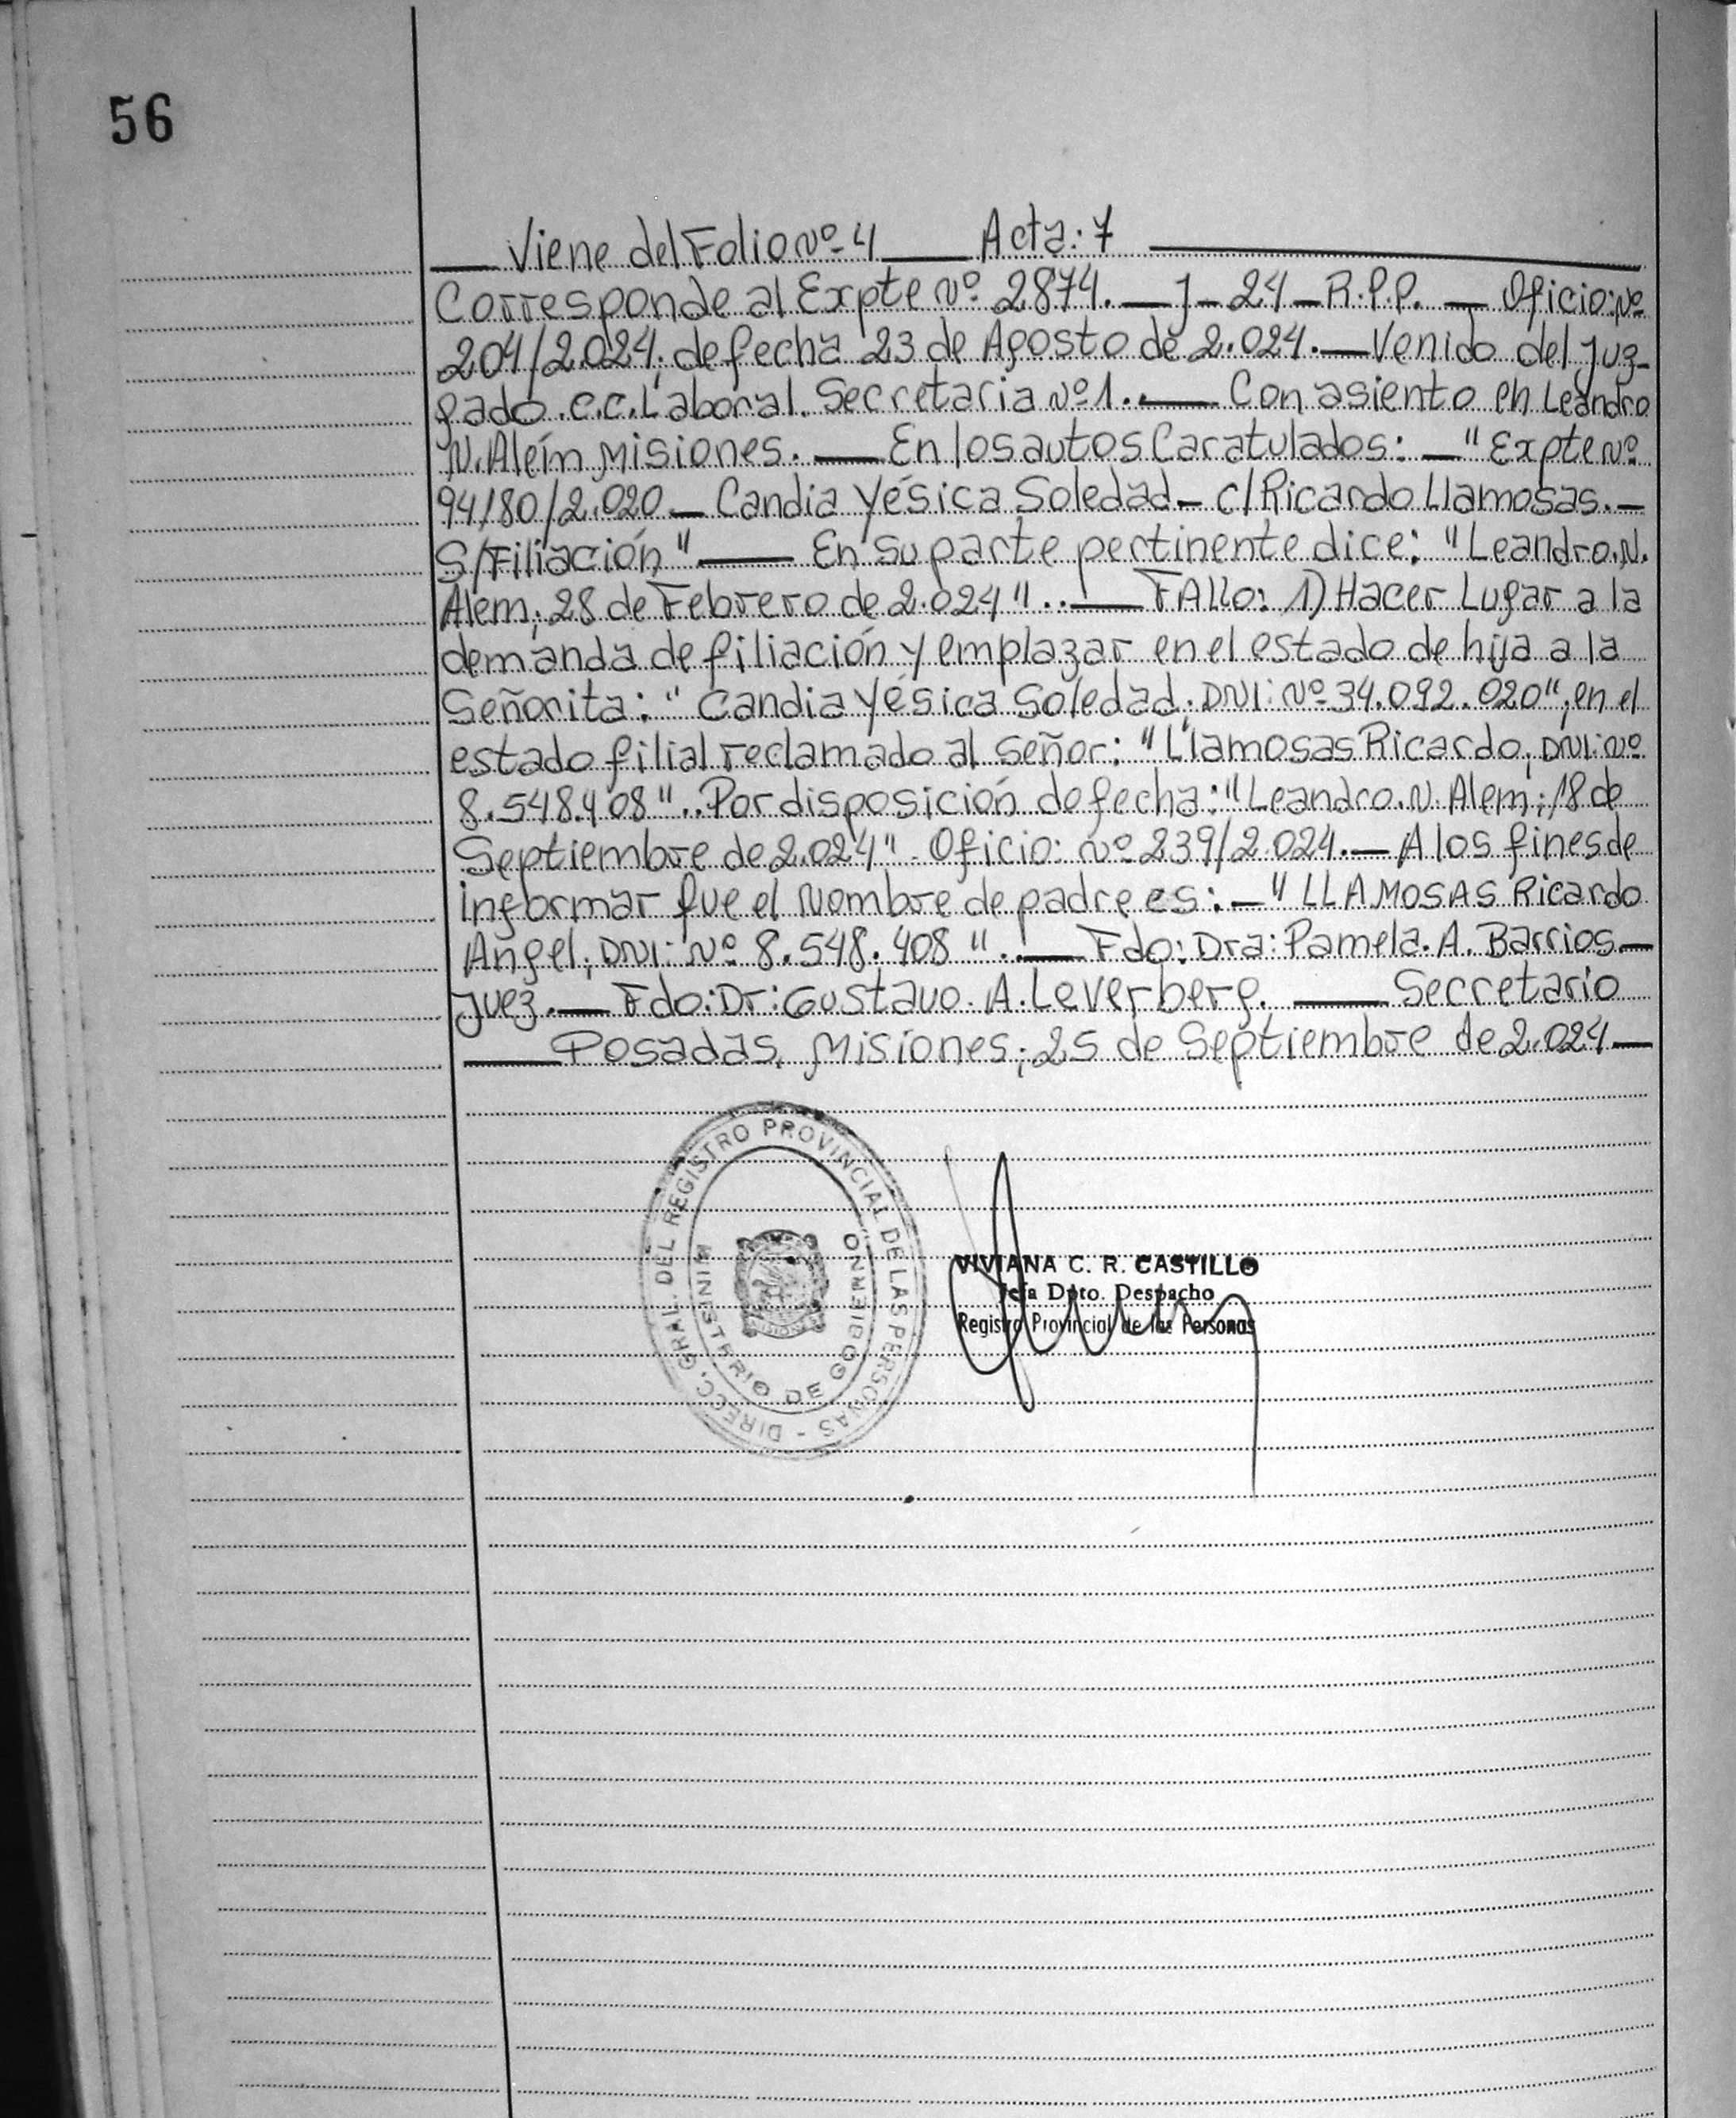 56
Viene del Folio Nº 4 Acta: 7
Corresponde al Expte Nº 2874. — J — 24 — R.P.P. — Oficio: Nº
204/2.024; de fecha 23 de Agosto de 2.024. — Venido del Juz-
gado. C.C. Laboral. Secretaria Nº 1. — Con asiento en Leandro
N. Alem Misiones. — En los autos Caratulados: — "Expte Nº
94180/2.020 — Candia Yésica Soledad — C/Ricardo Llamosas. —
S/Filiación" — En su parte pertinente dice: "Leandro. N.
Alem; 28 de Febrero de 2.024". — FAllo: 1) Hacer Lugar a la
demanda de filiación y emplazar en el estado de hija a la
Señorita: "Candia Yésica Soledad; DNI: Nº 34.092.020", en el
estado filial reclamado al Señor: "Llamosas Ricardo; DNI: Nº
8.548.408". Por disposición de fecha: "Leandro. N. Alem; 18 de
Septiembre de 2.024". Oficio: Nº 239/2.024. — A los fines de
informar que el Nombre de padre es: — "LLAMOSAS Ricardo
Angel; DNI: Nº 8.548.408". — Fdo: Dra: Pamela. A. Barrios —
Juez. — Fdo: Dr: Gustavo. A. Leverberg. — Secretario
Posadas, Misiones; 25 de Septiembre de 2.024 —
DIRECC. GRAL. DEL REGISTRO PROVINCIAL DE LAS PERSONAS -
MINISTERIO DE GOBIERNO
MISIONES
VIVIANA C. R. CASTILLO
Jefa Dpto. Despacho
Registro Provincial de las Personas